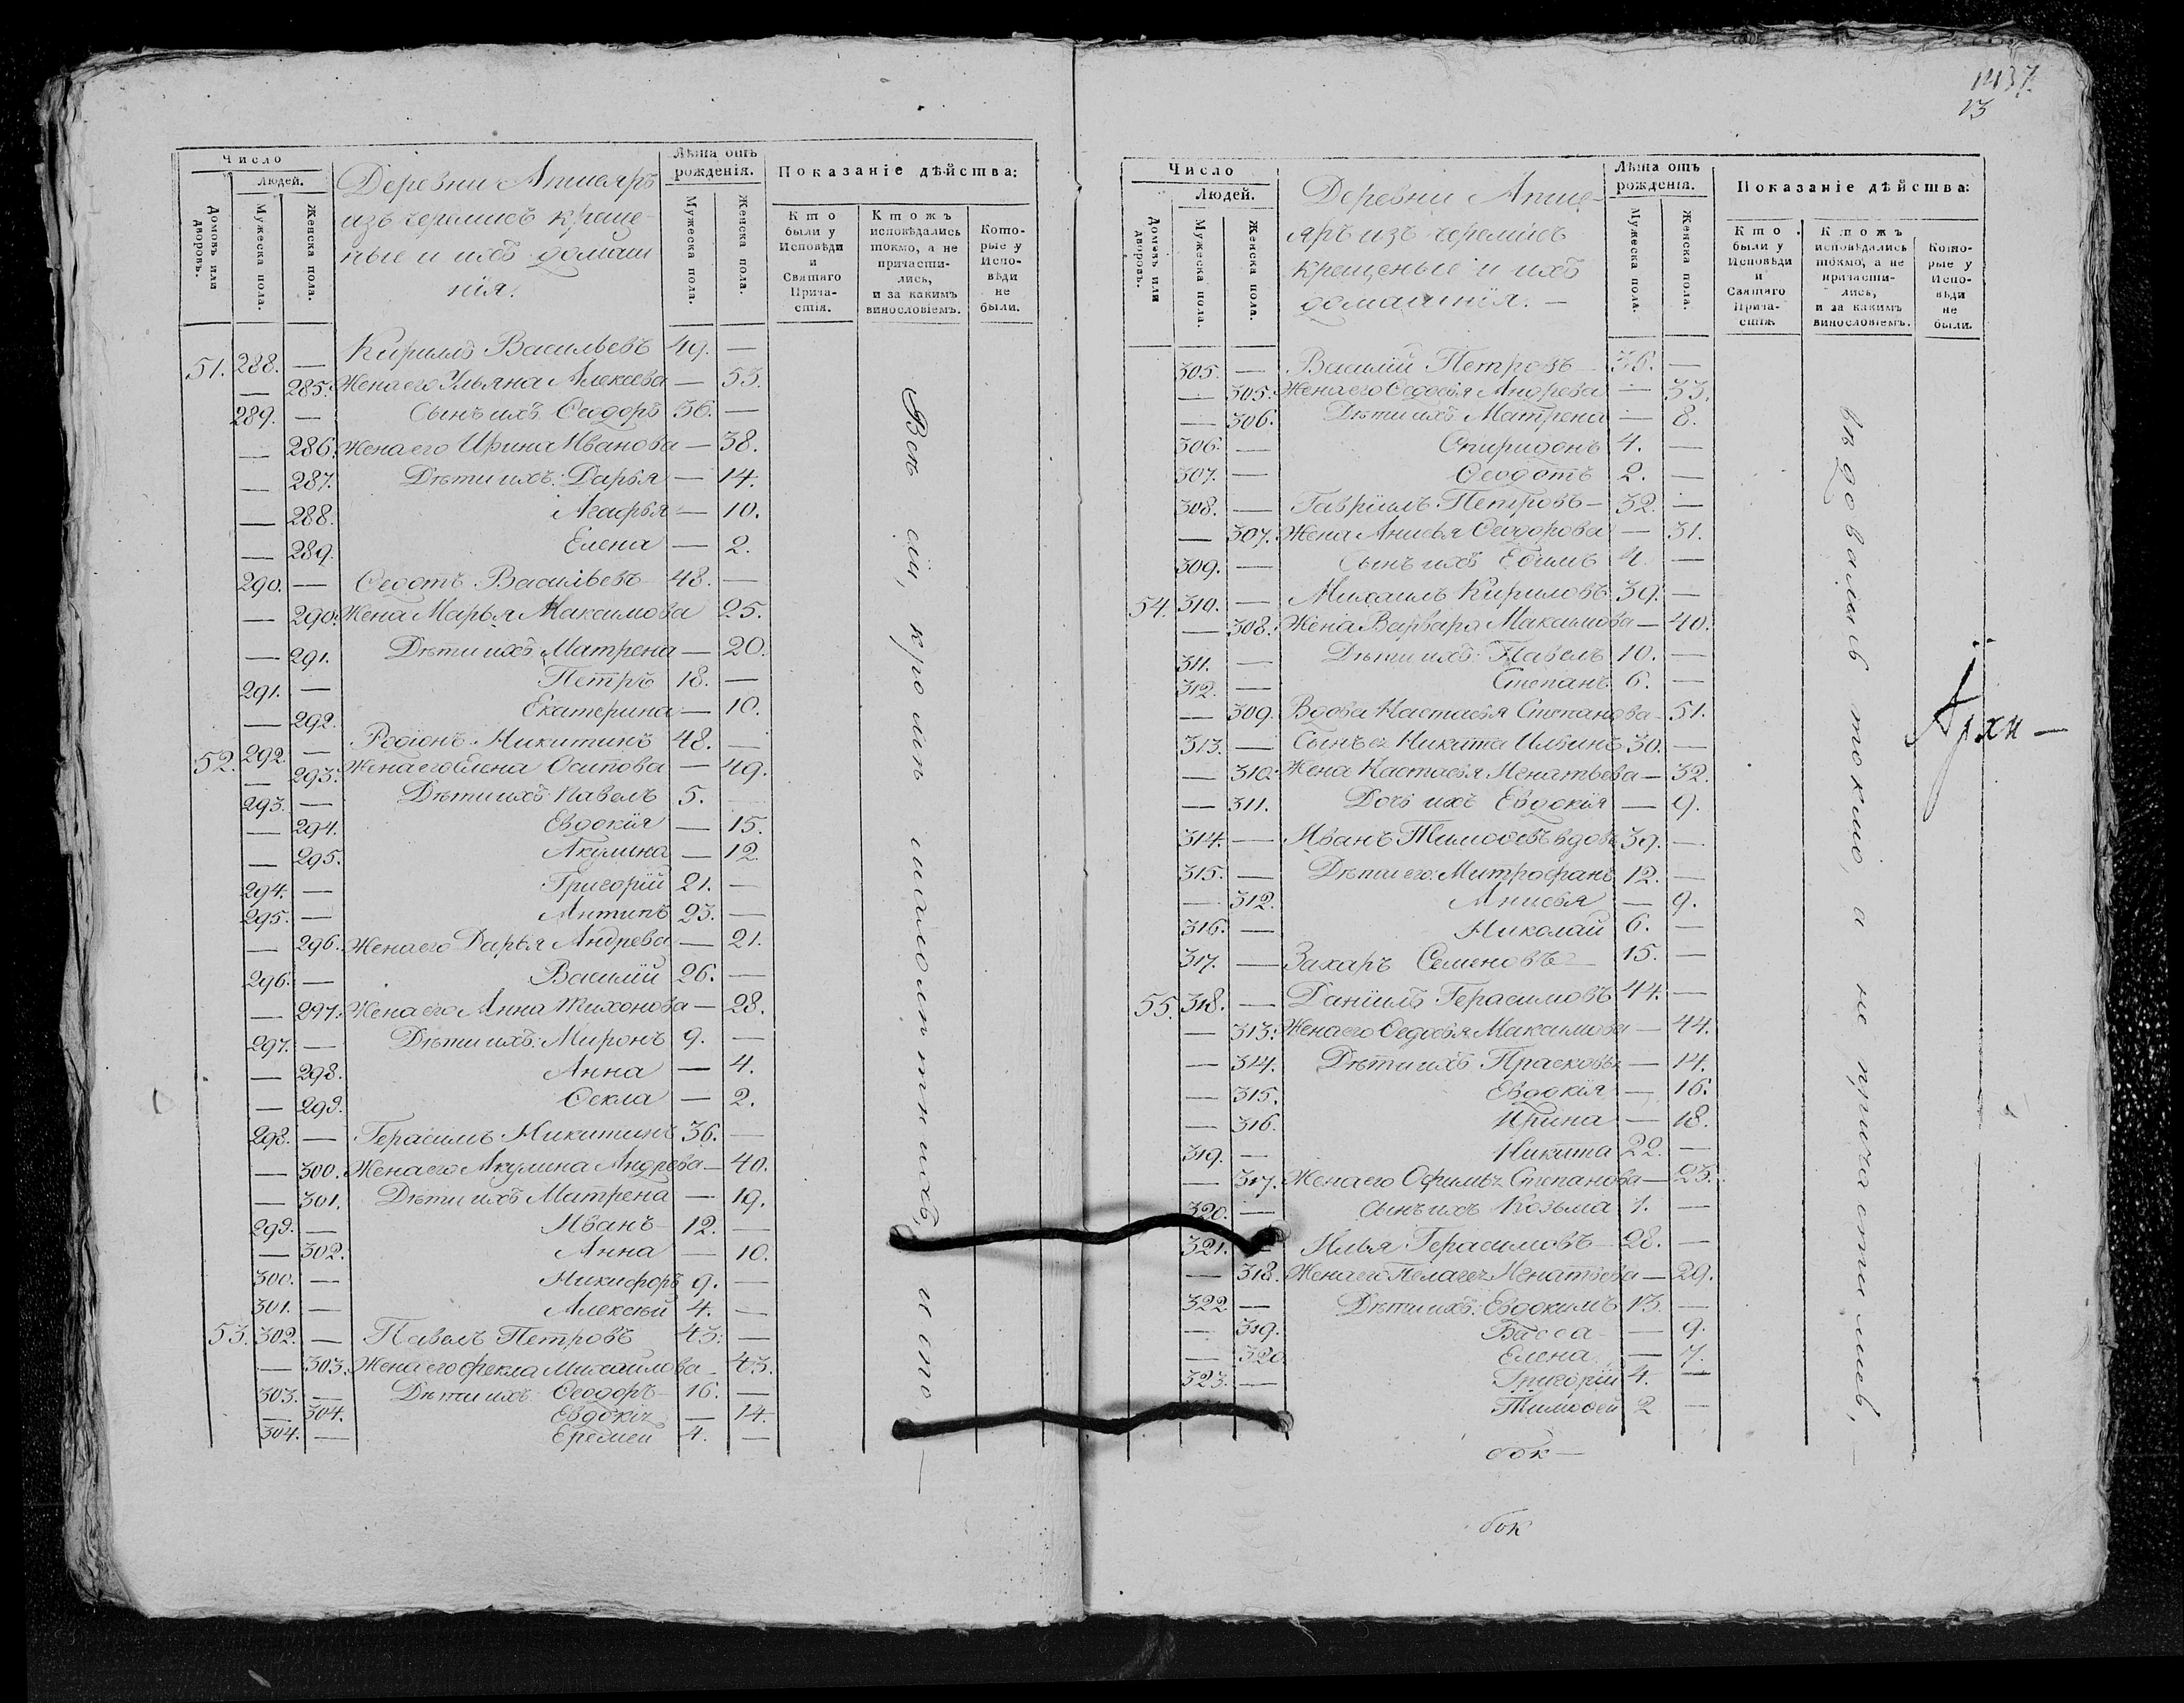 1437.
13
Число
Людей.
Домовъ или дворовъ.
Мужеска пола.
Женска пола.
Деревни Апшеяръ
изъ черемисъ креще-
ные и ихъ домаш
нія.
Лѣта отъ рожденія.
Мужеска пола.
Женска пола.
Показаніе дѣйства:
Кто были у Исповѣди и Святаго Прича-стія.
Ктожъ исповѣдались токмо, а не причасти-лись, и за какимъ винословіемъ.
Кото-рые у Испо-вѣди не были.
51. 288. — Кирилъ Васильевъ 49. —
— 285. Жена его Ульяна Алексева — 53.
289. — Сынъ ихъ Ѳеодоръ 36. —
— 286. Жена его Ирина Иванова — 38.
— 287. Дѣти ихъ: Дарья — 14.
— 288. Агафья — 10.
— 289. Елена — 2.
290. — Ѳедотъ Васильевъ 48. —
— 290. Жена Марья Максимова 25.
— 291. Дѣти ихъ Матрена — 20.
291. — Петръ 18. —
— 292. Екатерина — 10.
52. 292. — Родіонъ Никитинъ 48. —
— 293. Жена его Елена Осипова — 49.
293. — Дѣти ихъ Павелъ 5. —
— 294. Евдокія — 15.
— 295. Акулина — 12.
294. — Григорій 21. —
295. — Антипъ 23. —
— 296. Жена его Дарья Андрева — 21.
296. — Василій 26. —
— 297. Жена его Анна Тихонова — 28.
297. — Дѣти ихъ: Миронъ 9. —
— 298. Анна — 4.
— 299. Ѳекла — 2.
298. — Герасимъ Никитинъ 36. —
— 300. Жена его Акулина Андрева — 40.
— 301. Дѣти ихъ Матрена — 19.
299. — Иванъ 12. —
— 302. Анна — 10.
300. — Никифоръ 9. —
301. — Алексѣй 4. —
53. 302. — Павелъ Петровъ 43. —
— 303. Жена его Фекла Михаилова — 43.
303. — Дѣти ихъ Ѳеодоръ 16. —
— 304. Евдокія — 14.
304. — Еремей 4. —
Всѣ сіи, кромѣ малолѣтнихъ, испо —
Число
Людей.
Домовъ или дворовъ.
Мужеска пола.
Женска пола.
Деревни Апше-
яръ изъ черемисъ
крещеные и ихъ
домашнія. —
Лѣта отъ рожденія.
Мужеска пола.
Женска пола.
Показаніе дѣйства:
Кто были у Исповѣди и Святаго Прича-стія.
Ктожъ исповѣдались токмо, а не причасти-лись, и за какимъ винословіемъ.
Кото-рые у Испо-вѣди не были.
305. — Василій Петровъ 36. —
— 305. Жена его Ѳедосья Андрева — 33.
— 306. Дѣти ихъ Матрена — 8.
306. — Спиридонъ 4. —
307. — Ѳеодотъ 2. —
308. — Гавріилъ Петровъ — 32. —
— 307. Жена Анисья Ѳеодорова — 31.
309. — Сынъ ихъ Ефимъ 4. —
54. 310. — Михаилъ Кириловъ 39. —
— 308. Жена Варвара Максимова — 40.
311. — Дѣти ихъ: Павелъ 10. —
312. — Степанъ 6. —
— 309. Вдова Настасья Степанова — 51.
313. — Сынъ ея Никита Ильинъ 30. —
— 310. Жена Настасья Игнатьева — 32.
— 311. Дочь ихъ Евдокія — 9.
314. — Иванъ Тимоѳеевъ вдовъ 39. —
315. — Дѣти его: Митрофанъ 12. —
— 312. Анисья — 9.
316. — Николай 6. —
317. — Захаръ Семеновъ — 15. —
55. 318. — Даніилъ Герасимовъ 44. —
— 313. Жена его Ѳедосья Максимова — 44.
— 314. Дѣти ихъ Прасковья — 14.
— 315. Евдокія — 16.
— 316. Ирина — 18.
319. — Никита 22. —
— 317. Жена его Офимья Степанова — 23.
320. — Сынъ ихъ Козьма 1. —
321. — Илья Герасимовъ 28. —
— 318. Жена его Пелагея Игнатьева — 29.
322. — Дѣти ихъ: Евдокимъ 13. —
— 319. Васса — 9.
— 320. Елена — 7.
323. — Григорій 4. —
Тимоѳей 2 —
вѣдовались токмо, а не причастились, —
Архи —